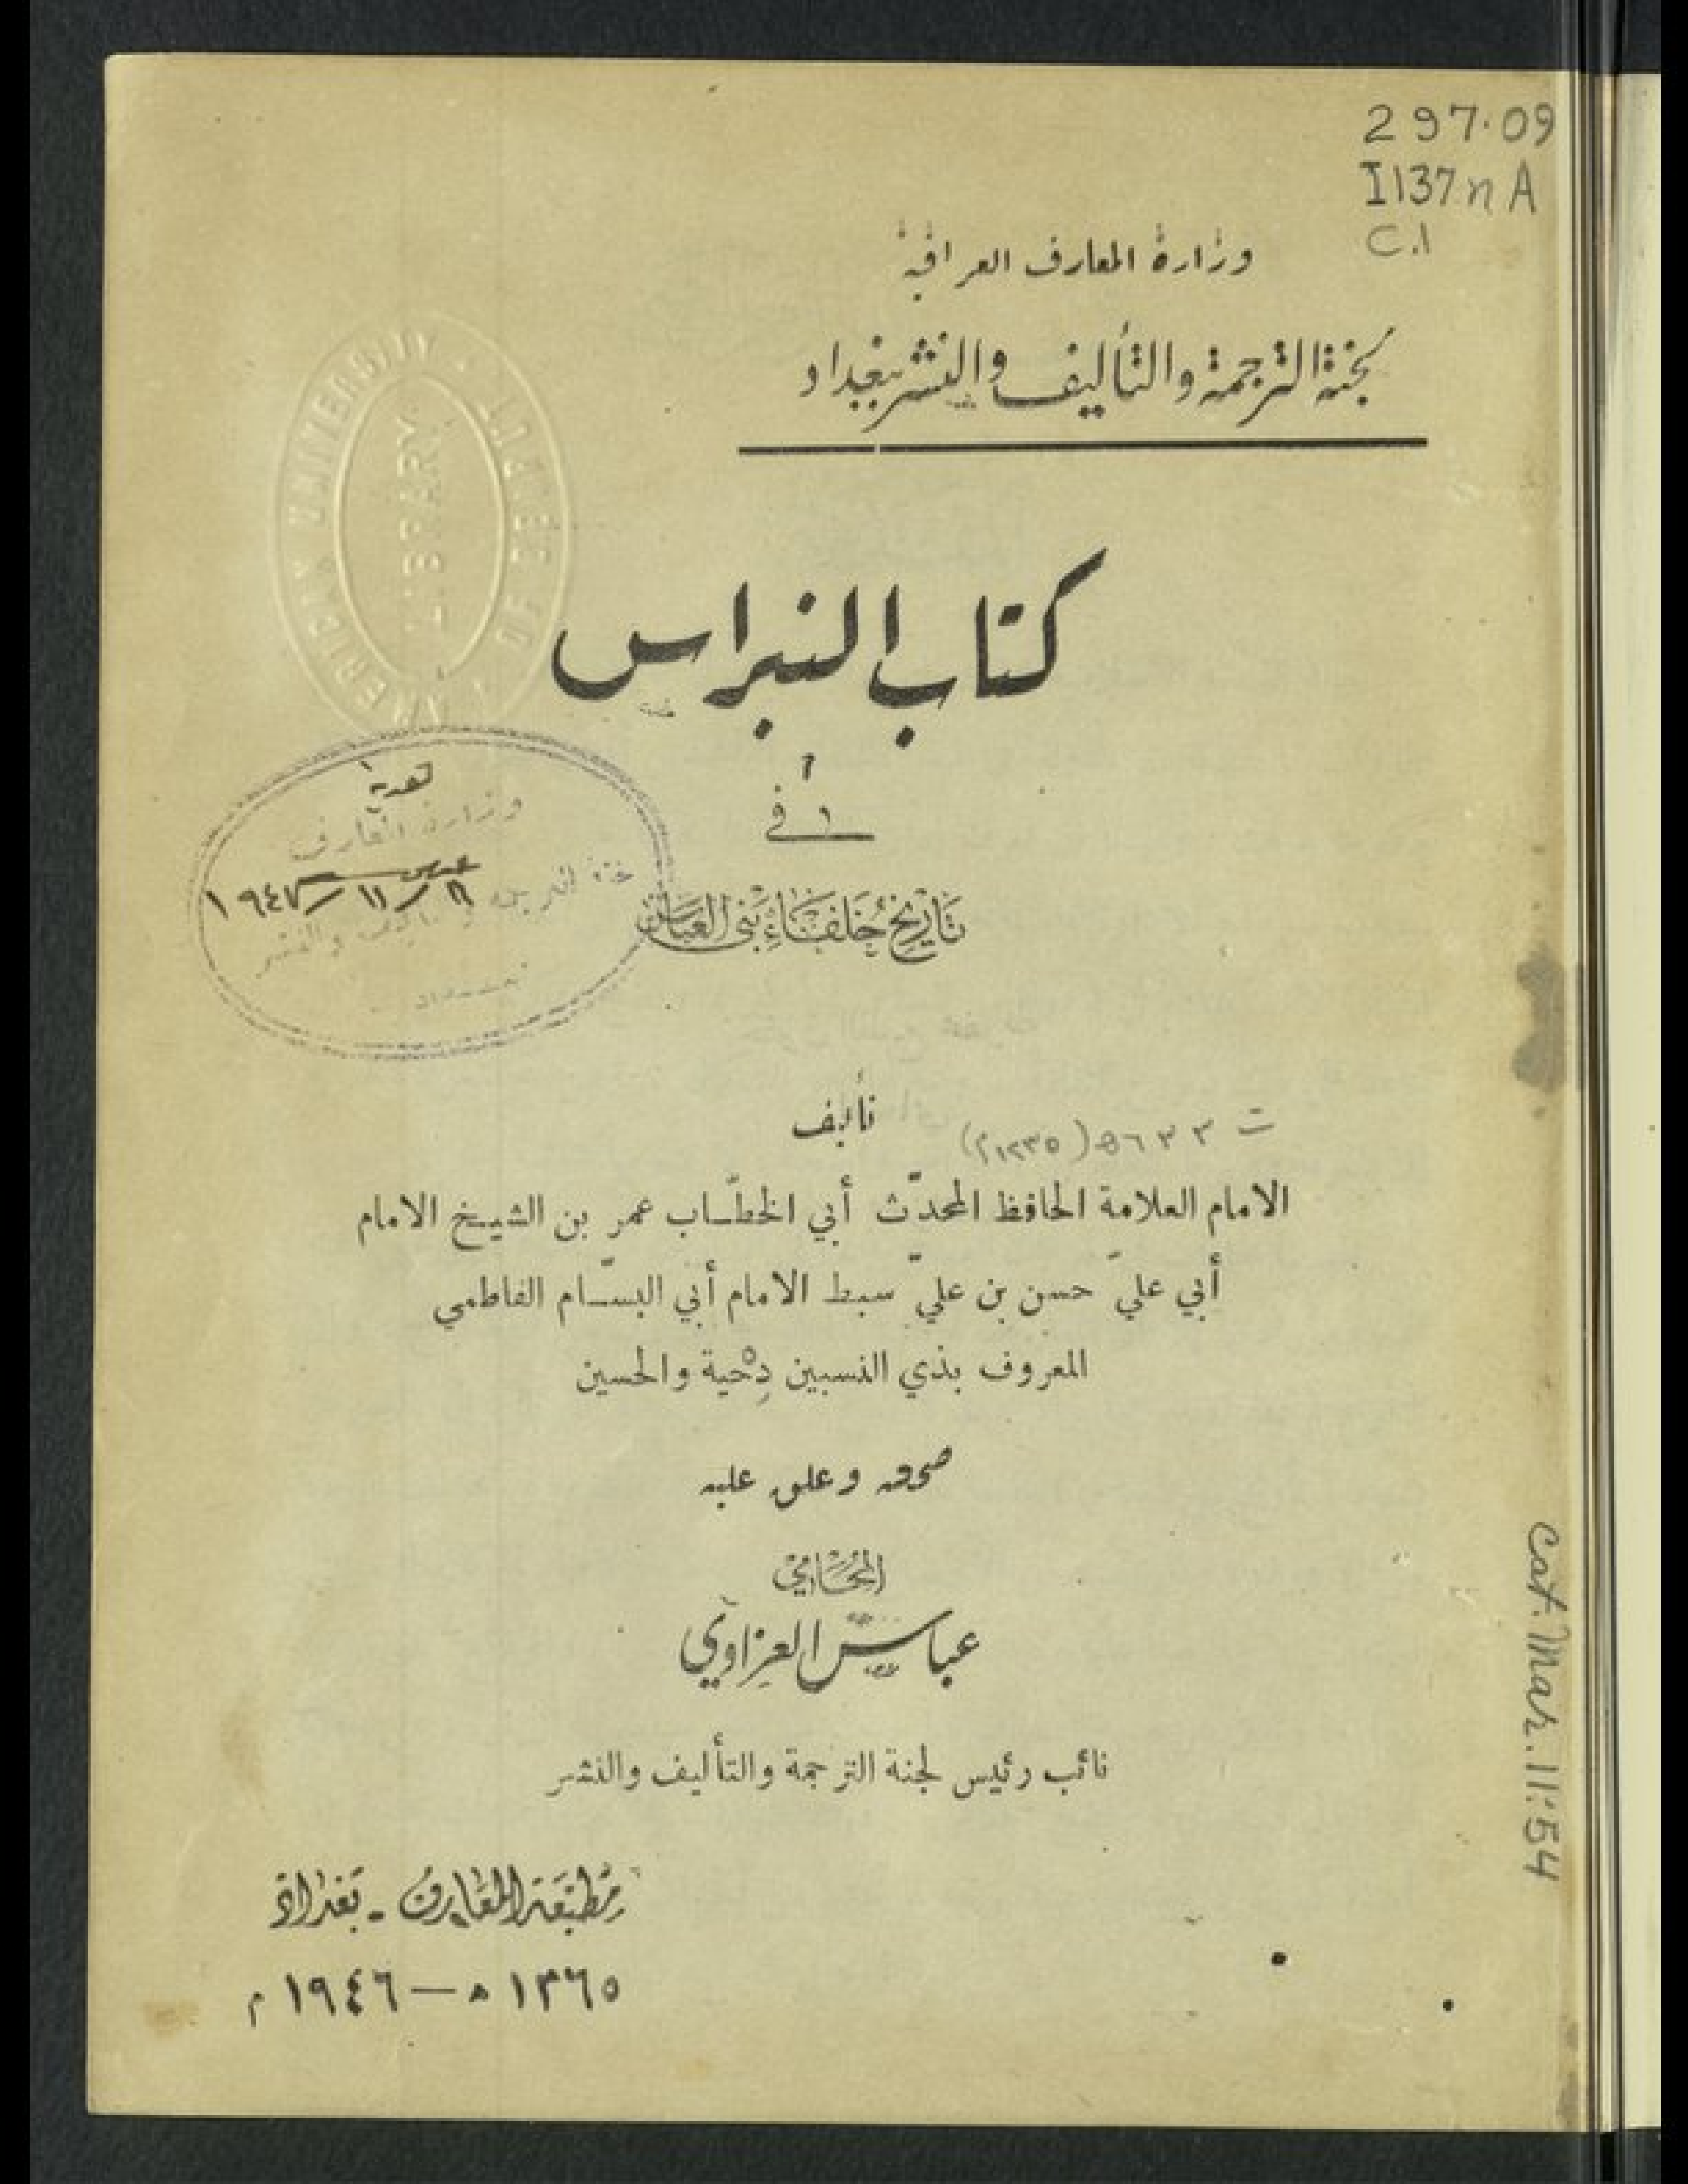 297.09
I137nA
C.1
وزارة المعارف العراقية
لجنة الترجمة والتأليف والنشر ببغداد
AMERICAN UNIVERSITY OF BEIRUT
LIBRARY
كتاب النبراس
في
تاريخ خلفاء بني العباس
وزارة المعارف
والنشر
١٩٤٧/١١/
تأليف
ت ٦٣٣ ه (١٢٣٥م)
الامام العلامة الحافظ المحدّث أبي الخطّاب عمر بن الشيخ الامام
أبي عليّ حسن بن عليّ سبط الامام أبي البسّام الفاطمي
المعروف بذي النسبين دِحْية والحسين
صححه وعلق عليه
المحامي
عباس العزاوي
نائب رئيس لجنة الترجمة والتأليف والنشر
مطبعة المعارف - بغداد
١٣٦٥ ه — ١٩٤٦ م
Cat. Mar. 11:54